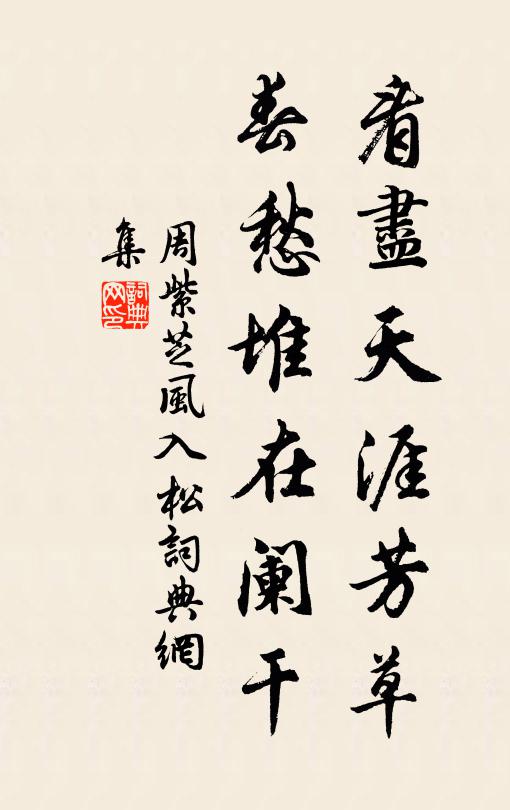 看盡天涯芳草
春愁堆在闌干
周紫芝風入松詞典網
集
詞典網印